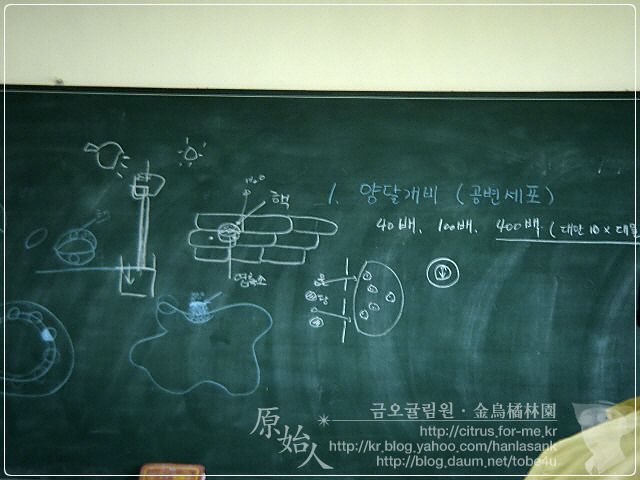 핵
1. 양달개비 (공변세포)
40배, 100배, 400배 (대안 10 × 대물
엽록소
물
당
原始人
금오귤림원 · 金烏橘林園
http://citrus.for-me.kr
http://kr.blog.yahoo.com/hanlasank
http://blog.daum.net/tobe4u